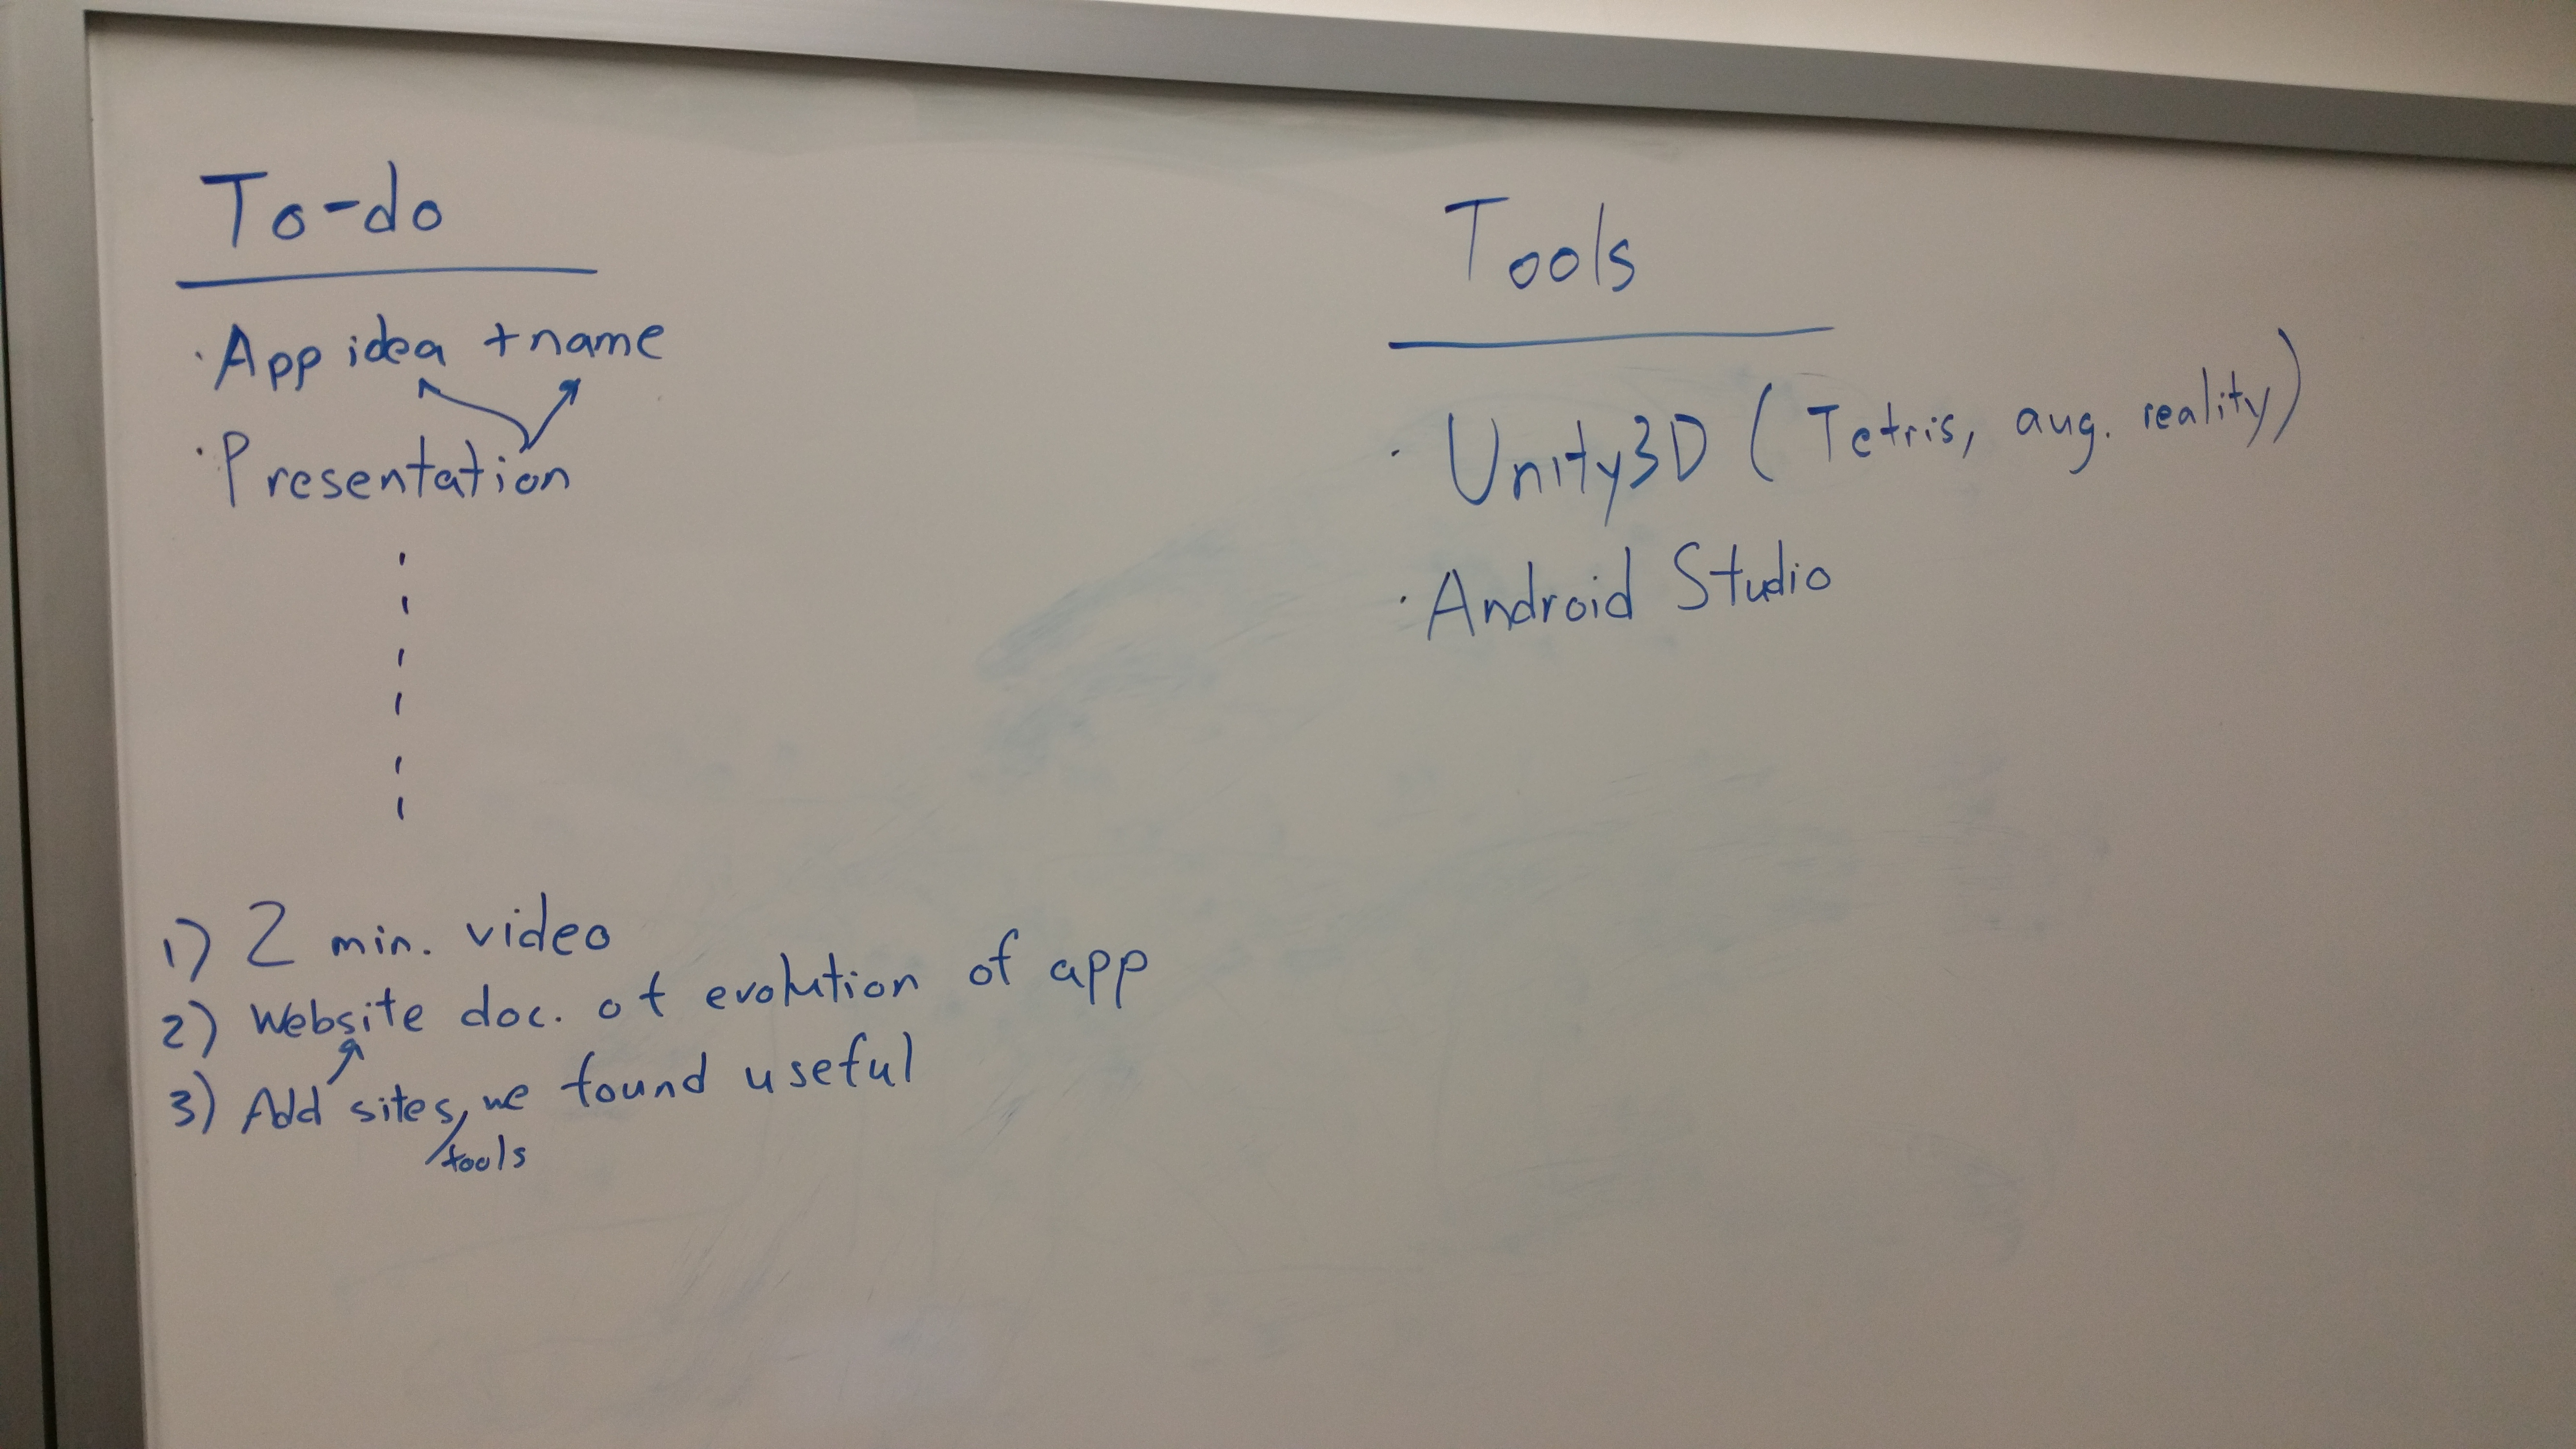 To-do
· App idea + name
· Presentation
1) 2 min. video
2) Website doc. of evolution of app
3) Add sites, we found useful
/tools
Tools
· Unity3D ( Tetris, aug. reality)
· Android Studio